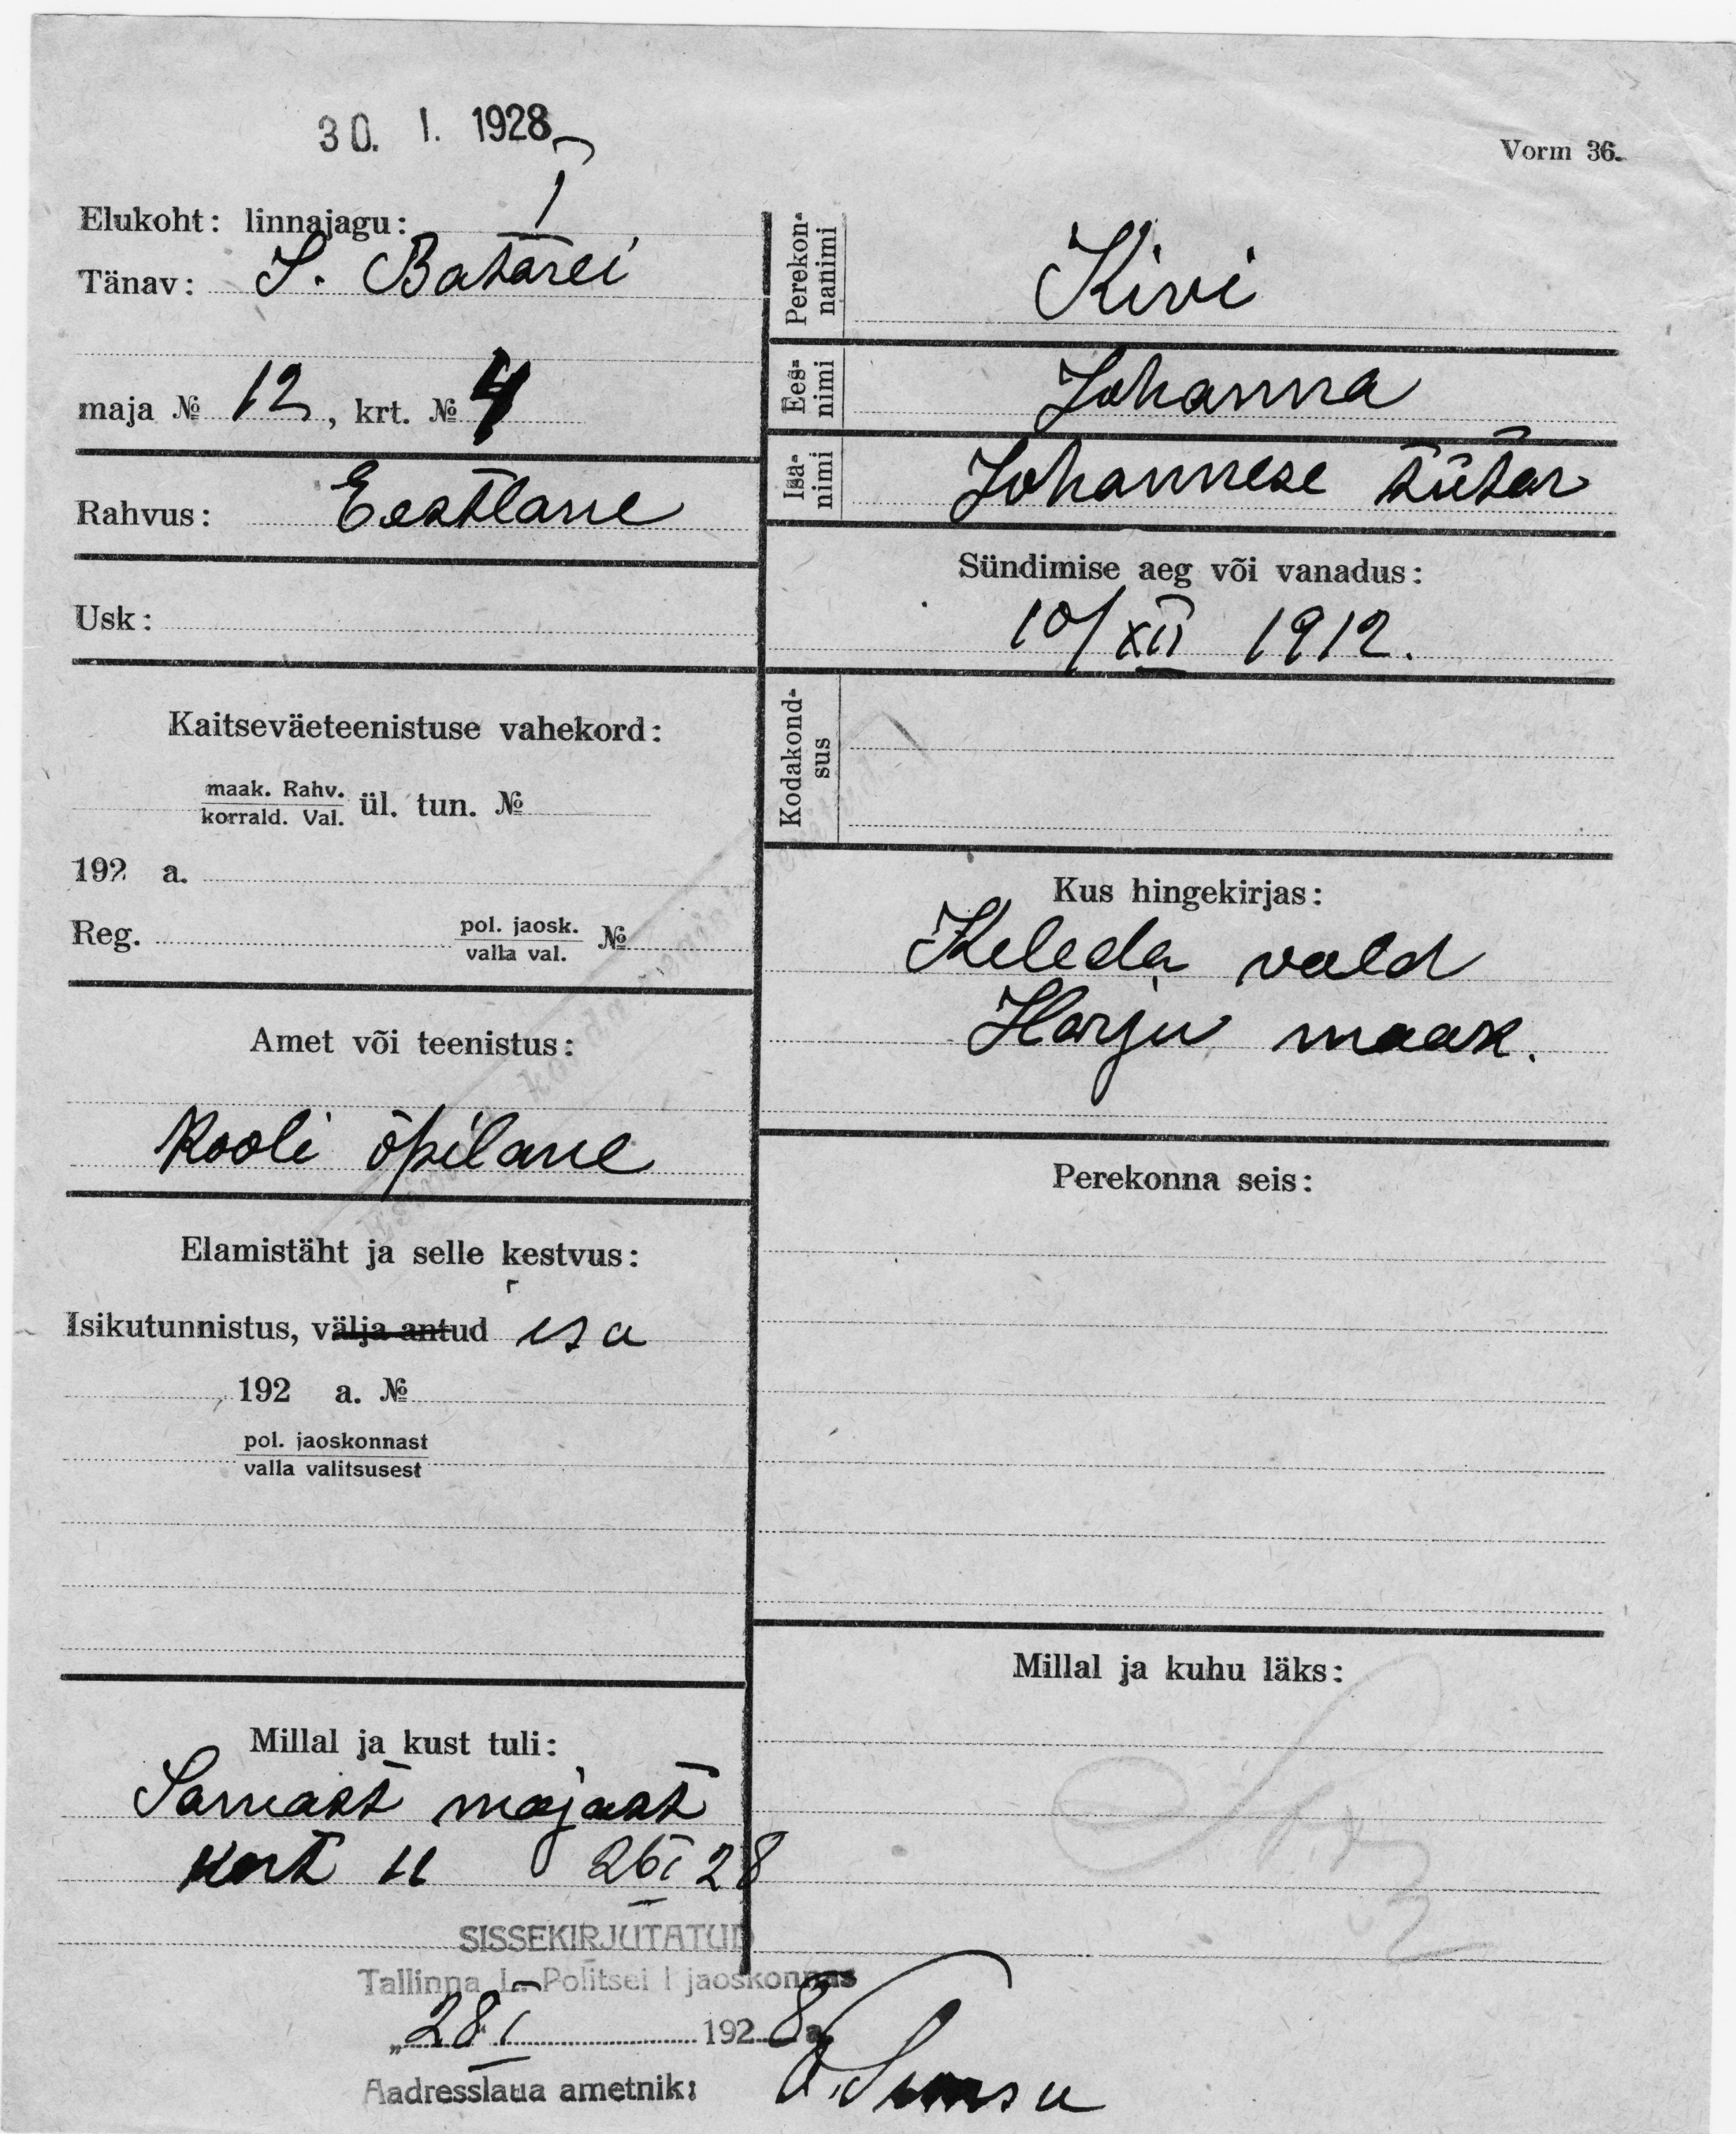 30. I. 1928
Vorm 36.
Elukoht: linnajagu: I
Tänav: S. Batarei
maja № 12, krt. № 4
Rahvus: Eestlane
Usk:
Kaitseväeteenistuse vahekord:
maak. Rahv.
korrald. Val. ül. tun. №
192 a.
Reg. pol. jaosk.
valla val. №
Amet või teenistus:
Kooli õpilane
Elamistäht ja selle kestvus:
Isikutunnistus, välja antud isa
192 a. №
pol. jaoskonnast
valla valitsusest
Millal ja kust tuli:
Samast majast
kort 11 26 I 28
SISSEKIRJUTATUD
Tallinna L. Politsei I jaoskonnas
"28 I 1928 a
Aadresslaua ametnik:
Perekonnanimi
Kivi
Eesnimi
Johanna
Isanimi
Johannese tütar
Sündimise aeg või vanadus:
10/XII 1912.
Kodakondsus
Kus hingekirjas:
Keleda vald
Harju maak.
Perekonna seis:
Millal ja kuhu läks: